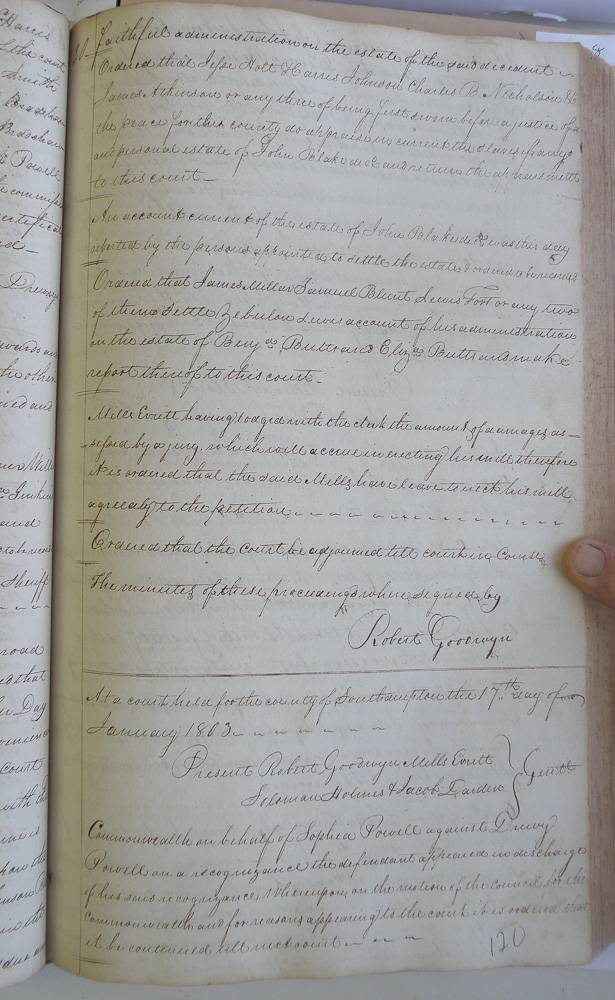 faithful administration on the estate of the said decedent
Ordered that Jesse Holt Harris Johnson Charles B. Nicholson &
James Atkinson or any three of being first sworn before a justice of
the peace for this county do appraise in current the slaves if any &
and personal estate of John Blake decd and return the appraisment
to this court
An account current of the estate of John Blake decd was this day
returned by the persons appointed to settle the estate & ordered to be recorded
Ordered that James Millar Samuel Blunt Lewis Fort or any two
of them settle Zebulon Lewis account of his administration
on the estate of Benjn. Butts and Elizth. Butts and make
report thereof to this court
Mills Evritt having lodged with the clerk the amount of damages as-
sessed by a jury, which will accrue in erecting his mill therefore
it is ordered that the said Mills have leave to erect his mill
agreeably to the petition
Ordered that the court be adjourned till court in Course
The minutes of these proceedings where signed by
Robert Goodwyn
At a court held for the county of Southampton the 17th. day of
January 1803
Present Robert Goodwyn Mills Evritt
Solomon Holmes & Jacob Darden } Gentn
Commonwealth on behalf of Sophia Powell against Drewry
Powell on a recognizance the defendant appeared in discharge
of his said recognizance, Whereupon, on the motion of the council for the
Commonwealth and for reasons appearing to the court it is ordered that
it be continued till next court
120